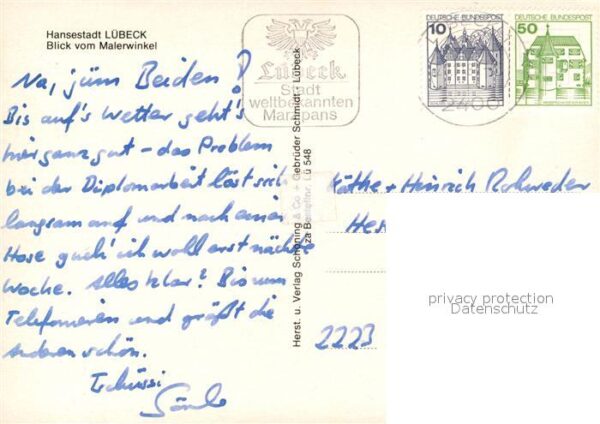 Hansestadt LÜBECK
Blick vom Malerwinkel
Lübeck
Stadt
weltbekannten
Marzipans
DEUTSCHE BUNDESPOST
10
DEUTSCHE BUNDESPOST
50
2400
Na, jüm Beiden!
Bis auf's Wetter geht's
hier ganz gut – das Problem
bei der Diplomarbeit löst sich
langsam auf und nach einer
Hose guck' ich wohl erst nächste
Woche. Alles klar? Bis zum
Telefonieren und grüßt die
anderen schön.
Tschüssi
Herst. u. Verlag Schöning & Co + Gebrüder Schmidt · Lübeck
Lü 548
Käthe + Heinrich Rohweder
2223
privacy protection
Datenschutz